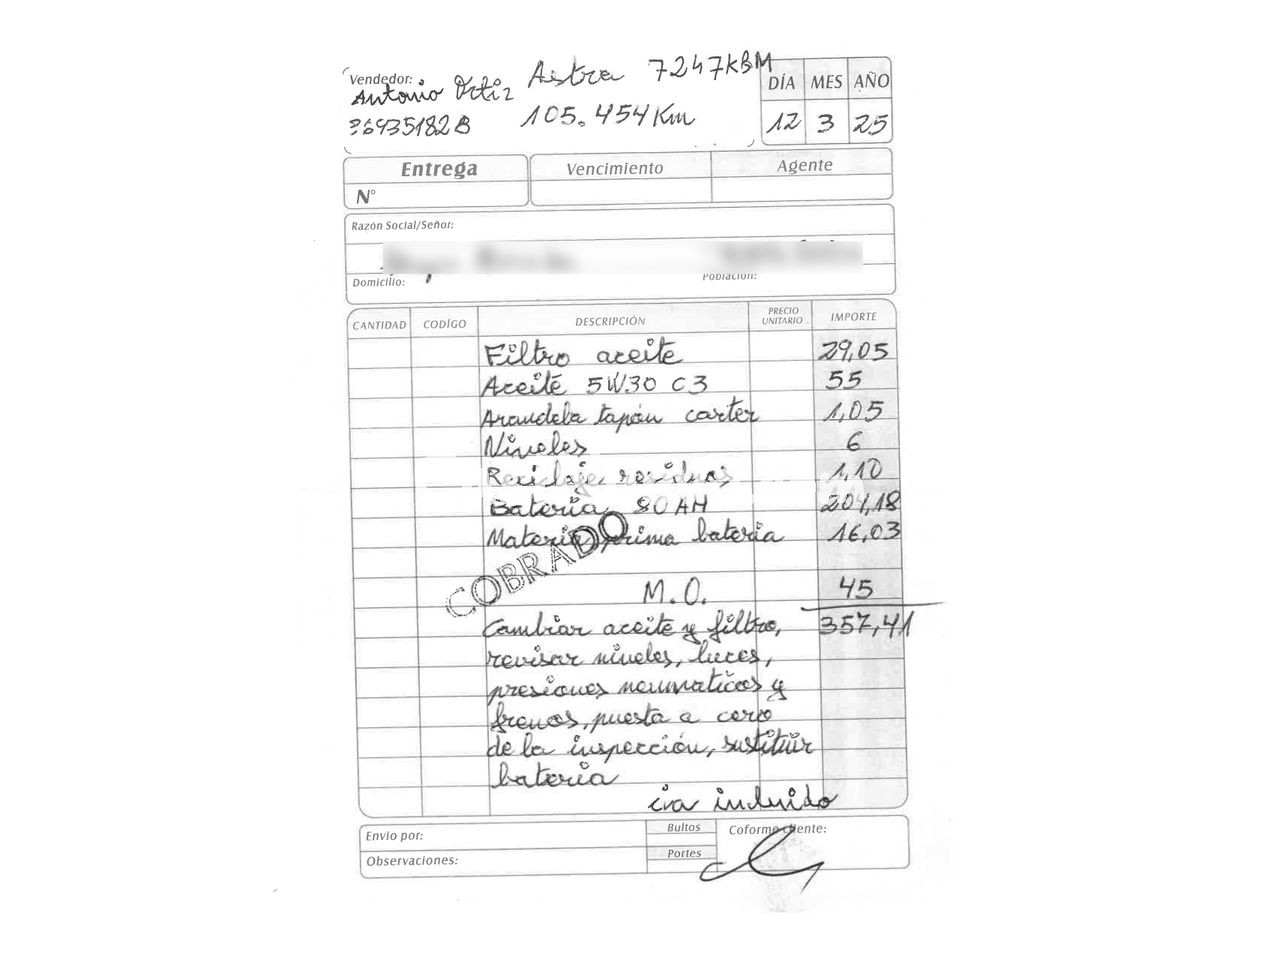 Astra 7247KBM
Vendedor:
Antonio Ortiz
36935182B
105.454 Km
DÍA MES AÑO
12 3 25
Entrega Vencimiento Agente
N°
Razón Social/Señor:
Domicilio: Población:
CANTIDAD CODÍGO DESCRIPCIÓN PRECIO UNITARIO IMPORTE
Filtro aceite 29,05
Aceite 5W30 C3 55
Arandela tapón carter 1,05
Niveles 6
Reciclaje residuos 1,10
Bateria 80 AH 204,18
Materia prima bateria 16,03
COBRADO
M.O. 45
Cambiar aceite y filtro, 357,41
revisar niveles, luces,
presiones neumaticos y
frenos, puesta a cero
de la inspección, sustituir
bateria
iva incluido
Envio por: Bultos Coforme cliente:
Observaciones: Portes